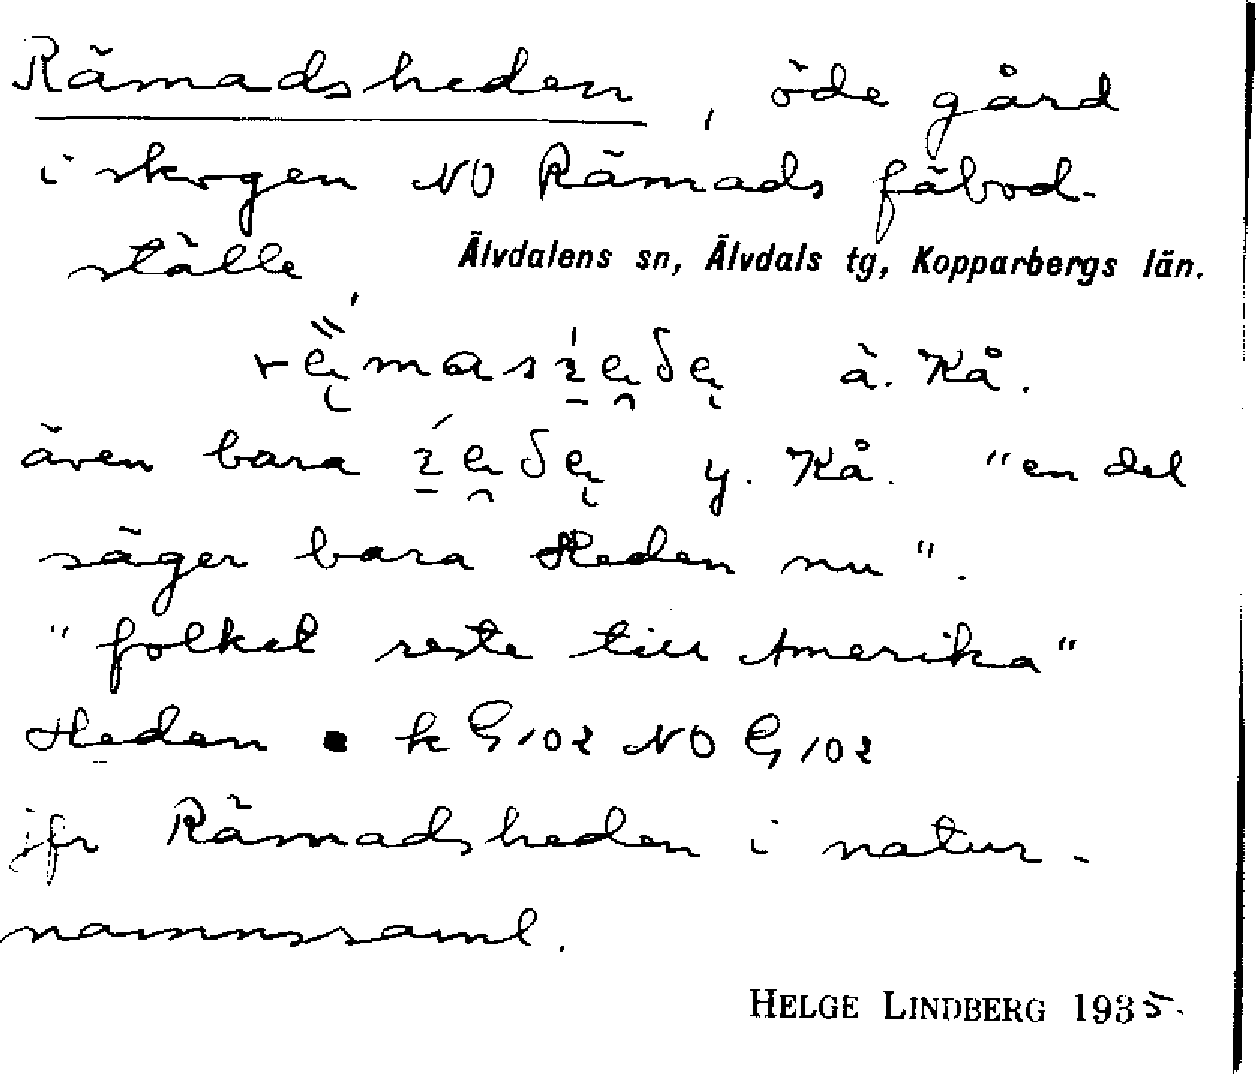 Rämadsheden, öde gård
i skogen NO Rämads fäbod-
ställe Älvdalens sn, Älvdals tg, Kopparbergs län.
ä. Kå.
även bara y. Kå. "en del
säger bara Heden nu".
"folket reste till Amerika"
Heden k G102 NO G102
jfr Rämadsheden i natur-
namnssaml.
HELGE LINDBERG 1935.